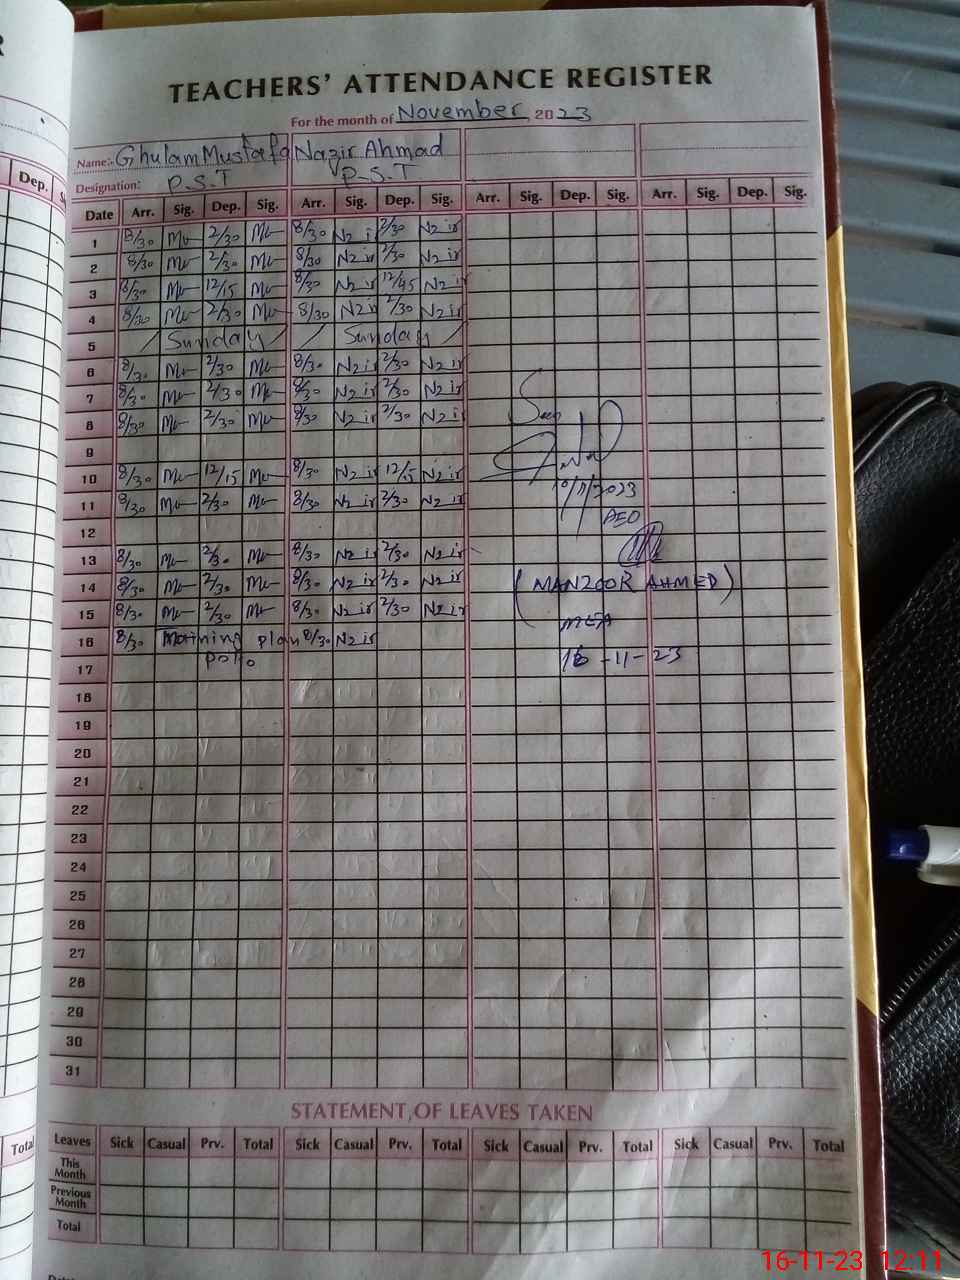 TEACHERS' ATTENDANCE REGISTER
For the month of November 2023
Name:- Ghulam Mustafa Nazir Ahmad
Designation: P.S.T P.S.T
Dep.
Date Arr. Sig. Dep. Sig. Arr. Sig. Dep. Sig. Arr. Sig. Dep. Sig. Arr. Sig. Dep. Sig.
1 8/30 Mu 2/30 Mu 8/30 Nzir 2/30 Nzir
2 8/30 Mu 2/30 Mu 8/30 Nzir 2/30 Nzir
3 8/30 Mu 12/15 Mu 8/30 Nzir 12/45 Nzir
4 8/30 Mu 2/30 Mu 8/30 Nzir 2/30 Nzir
5 / Sunday / / Sunday /
6 8/30 Mu 2/30 Mu 8/30 Nzir 2/30 Nzir
7 8/30 Mu 2/30 Mu 8/30 Nzir 2/30 Nzir
8 8/30 Mu 2/30 Mu 8/30 Nzir 2/30 Nzir
9
10 8/30 Mu 12/15 Mu 8/30 Nzir 12/15 Nzir
11 8/30 Mu 2/30 Mu 8/30 Nzir 2/30 Nzir
12
13 8/30 Mu 2/30 Mu 8/30 Nzir 2/30 Nzir
14 8/30 Mu 2/30 Mu 8/30 Nzir 2/30 Nzir
15 8/30 Mu 2/30 Mu 8/30 Nzir 2/30 Nzir
16 8/30 plan 8/30 Nzir
17
18
19
20
21
22
23
24
25
26
27
28
29
30
31
Seen
10/11/2023
AEO
(MANZOOR AHMED)
MEA
16-11-23
STATEMENT OF LEAVES TAKEN
Total
Leaves Sick Casual Prv. Total Sick Casual Prv. Total Sick Casual Prv. Total Sick Casual Prv. Total
This Month
Previous Month
Total
16-11-23 12:11